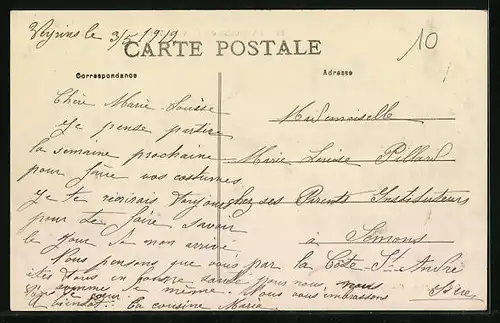 Veyrins le 3/5 1919
10
CARTE POSTALE
Correspondance
Adresse
Chère Marie Louise
Je pense partir
la semaine prochaine
pour faire vos costumes
Je te récrirais toujours
pour te faire savoir
le jour de mon arrivé
Nous pensons que vous
êtes tous en bonne santé nous nous
sommes de même. Nous vous embrassons
A bientôt. Ta cousine Marie
Mademoiselle
Marie Louise Pillard
chez ses Parents Instituteurs
à Semons
par la Côte St André
Isère